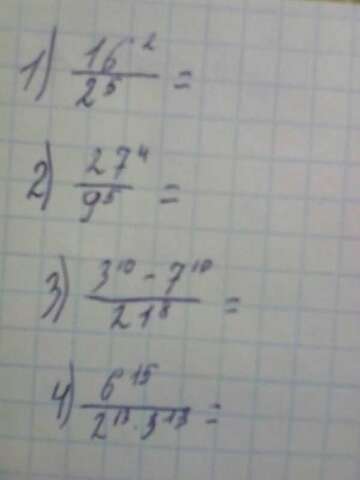 1) 16² / 2⁵ =
2) 27⁴ / 9⁵ =
3) 3¹⁰ - 7¹⁰ / 21⁸ =
4) 6¹⁵ / 2¹³ · 3¹³ =